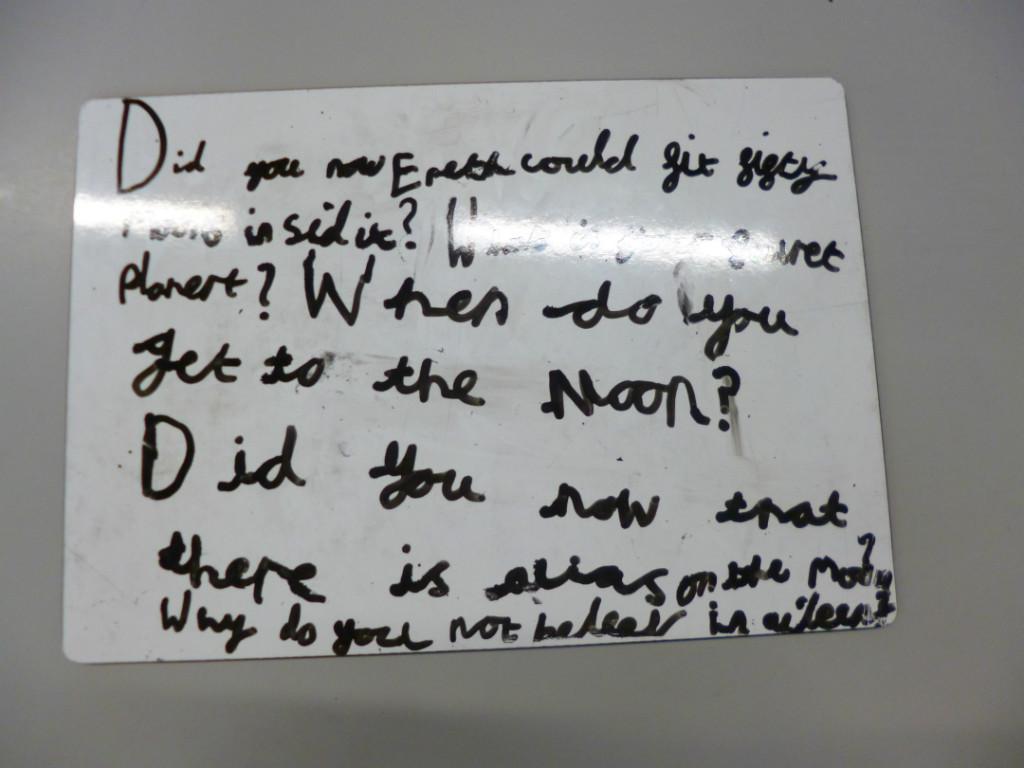 Did you now Earth could fit fifty
insid it? What is
planert? When do you
get to the Moon?
Did you now that
there is alias on the Moon?
Why do you not beleev in aileen?